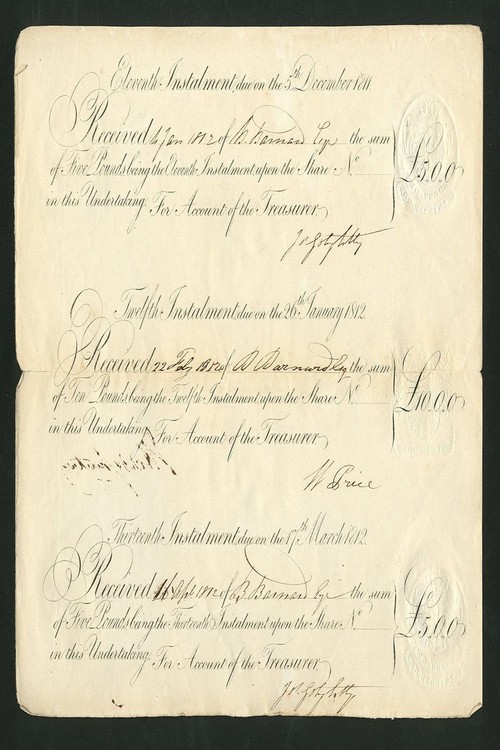 Eleventh Instalment, due on the 5th December 1811.
Received Jan 1812 of B. Barnard Esqr the sum
of Five Pounds being the Eleventh Instalment upon the Share No
in this Undertaking. For Account of the Treasurer,
£5.0.0
Twelfth Instalment, due on the 26th January 1812.
Received 22 Feby 1812 of B Barnard Esq the sum
of Ten Pounds being the Twelfth Instalment, upon the Share No
in this Undertaking. For Account of the Treasurer,
£10.0.0
W Price
Thirteenth Instalment, due on the 17th March 1812.
Received 1812 of B Barnard Esqr the sum
of Five Pounds being the Thirteenth Instalment upon the Share No
in this Undertaking. For Account of the Treasurer,
£5.0.0